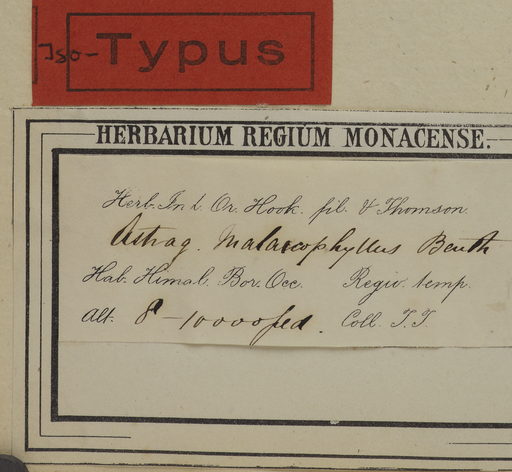 Iso- Typus
HERBARIUM REGIUM MONACENSE.
Herb. Ind. Or. Hook. fil. & Thomson.
Astrag. Malacophyllus Benth
Hab. Himal. Bor. Occ. Regio. temp.
Alt. 8-10000 ped. Coll. T.T.